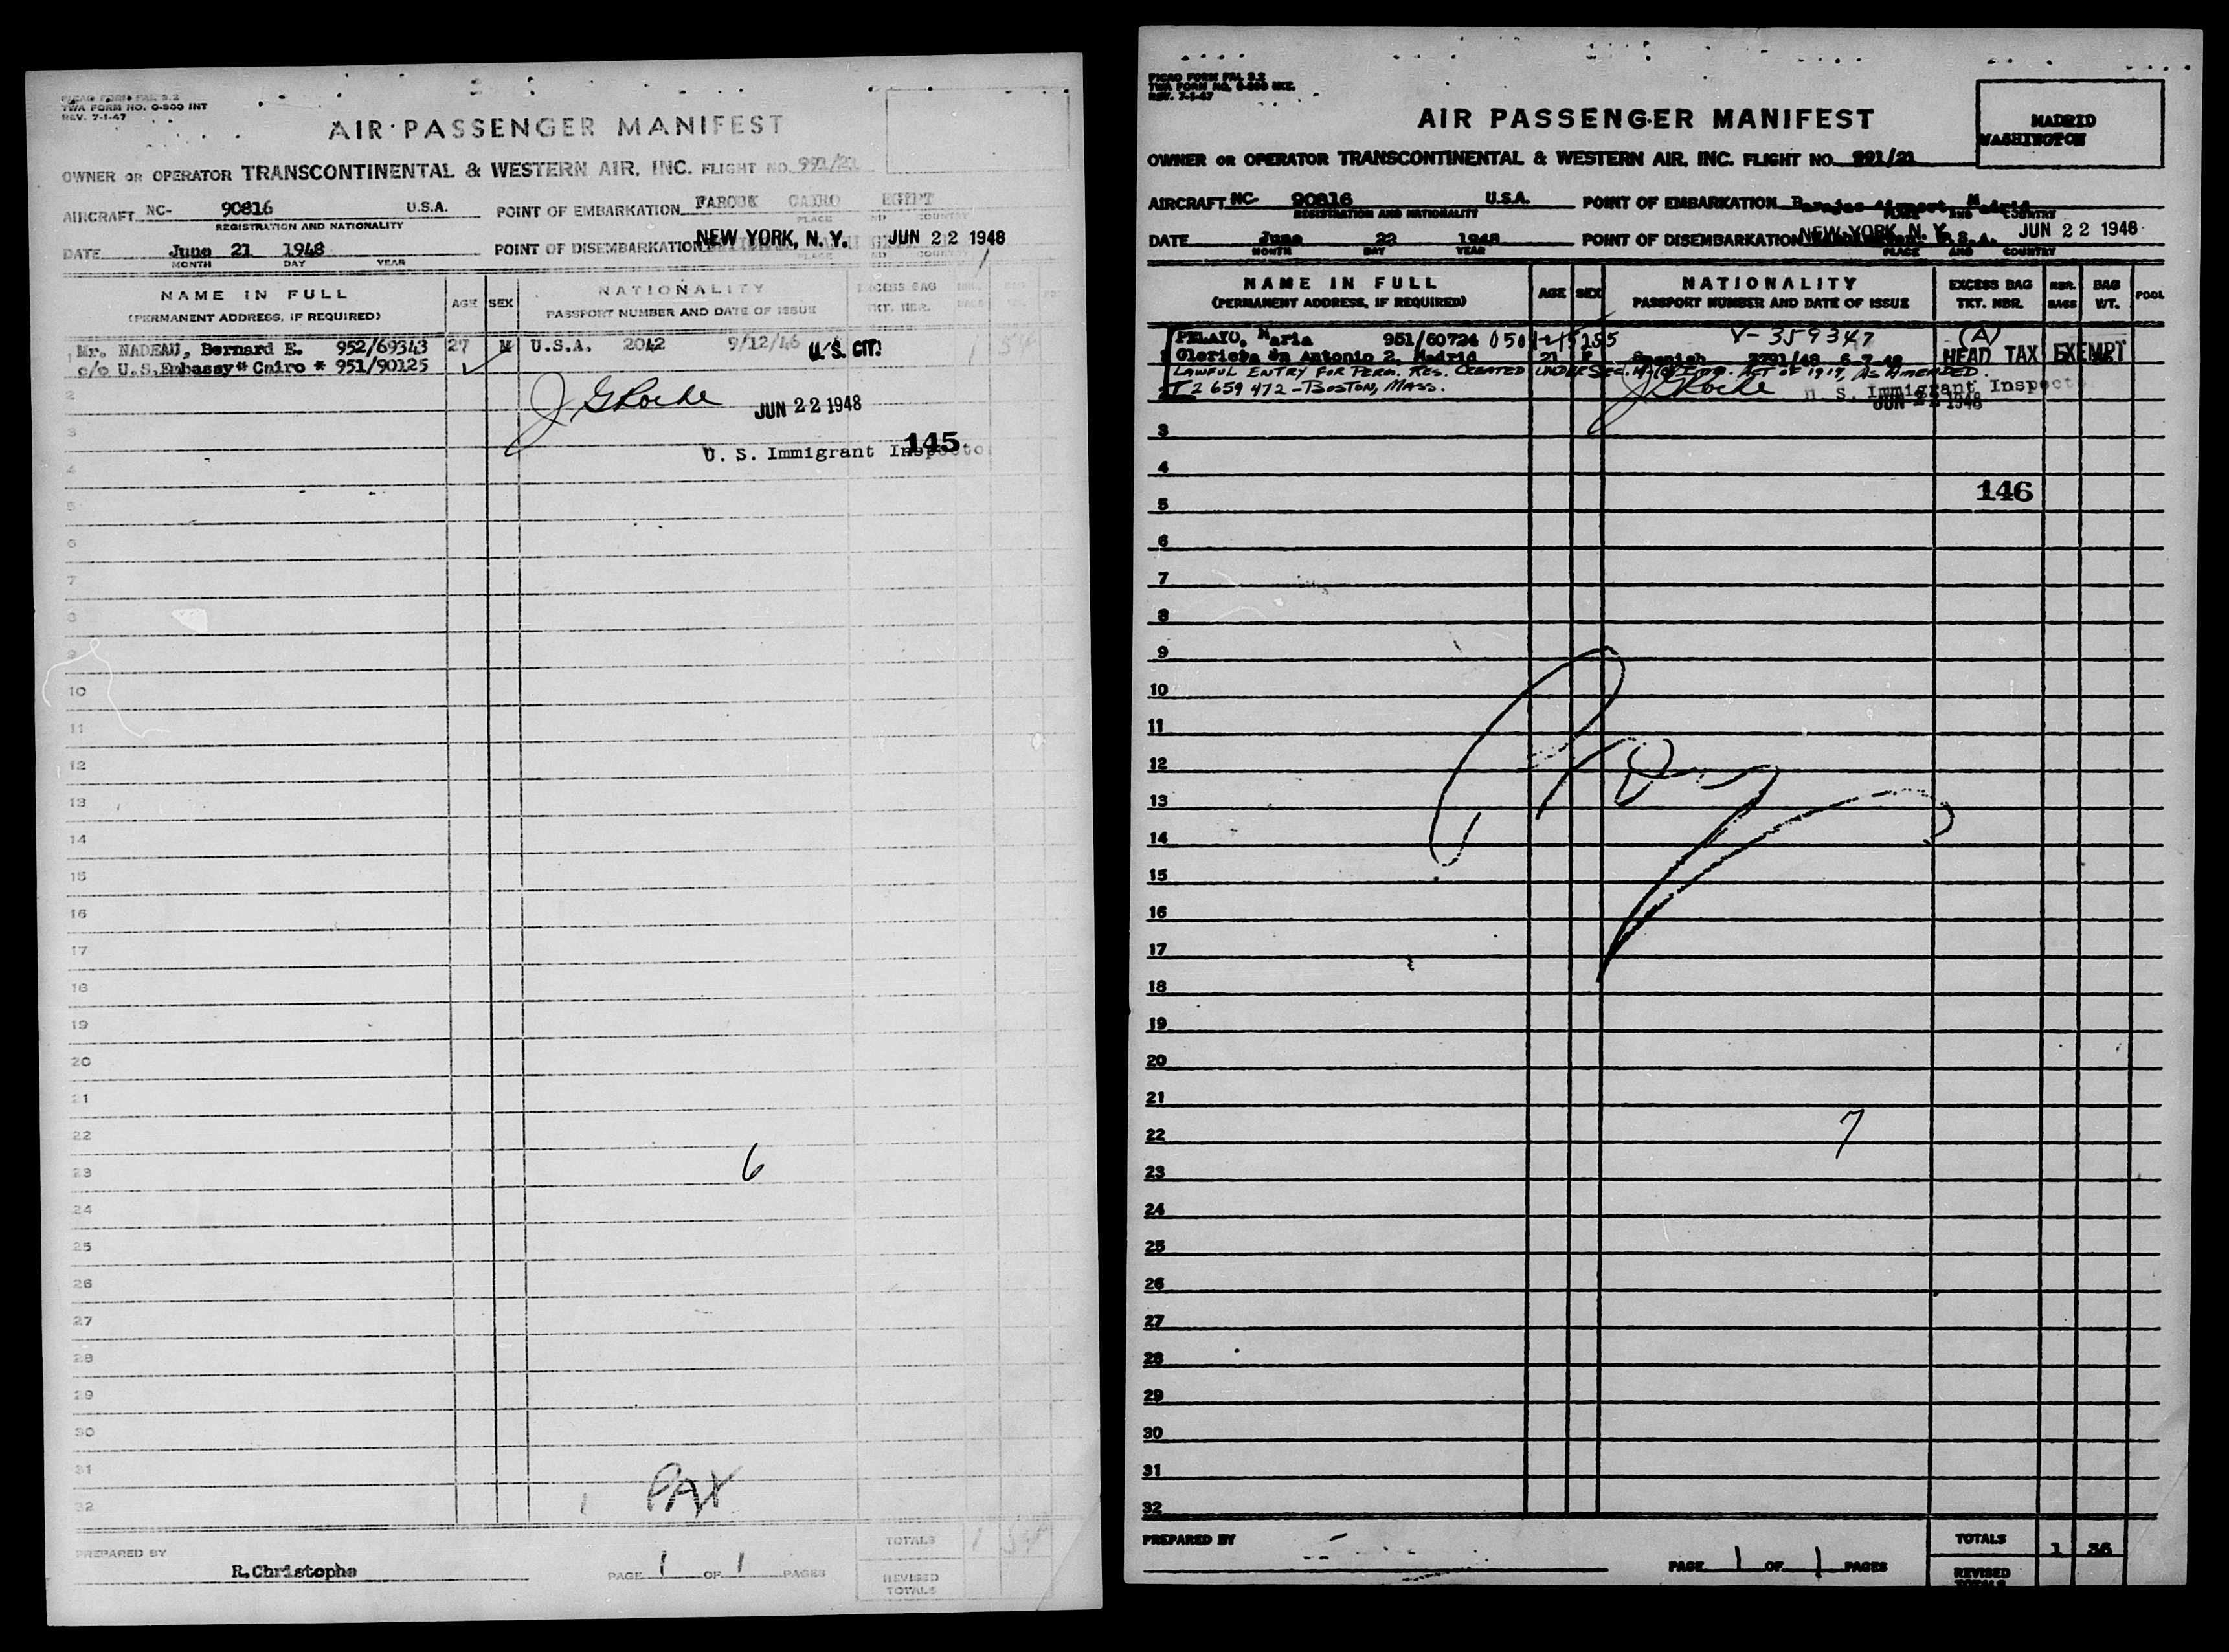 PICAO FORM FAL 3.2
TWA FORM NO. 0-800 INT
REV. 7-1-47
AIR PASSENGER MANIFEST
OWNER OR OPERATOR TRANSCONTINENTAL & WESTERN AIR, INC. FLIGHT NO. 991/21
AIRCRAFT NC- 90816 U.S.A. POINT OF EMBARKATION FAROUK CAIRO EGYPT
REGISTRATION AND NATIONALITY PLACE AND COUNTRY
DATE June 21 1948 POINT OF DISEMBARKATION NEW YORK, N. Y. JUN 22 1948
MONTH DAY YEAR PLACE AND COUNTRY
NAME IN FULL AGE SEX NATIONALITY EXCESS BAG
(PERMANENT ADDRESS, IF REQUIRED) PASSPORT NUMBER AND DATE OF ISSUE TKT. NBR.
Mr. NADEAU, Bernard E. 952/69343 27 M U.S.A. 2042 9/12/46 U.S. CIT.
c/o U.S.Embassy* Cairo * 951/90125
2
J G Roche JUN 22 1948
3
145
U. S. Immigrant Inspecto
4
5
6
7
8
9
10
11
12
13
14
15
16
17
18
19
20
21
22
23 6
24
25
26
27
28
29
30
31
32 1 PAX
TOTALS 1
PREPARED BY R.Christophe PAGE 1 OF 1 PAGES
REVISED
TOTALS
PICAO FORM FAL 3.2
TWA FORM NO. 0-800 INT.
REV. 7-1-47
MADRID
WASHINGTON
AIR PASSENGER MANIFEST
OWNER OR OPERATOR TRANSCONTINENTAL & WESTERN AIR, INC. FLIGHT NO. 991/21
AIRCRAFT NC- 90816 U.S.A. POINT OF EMBARKATION Barajas Airport, Madrid
REGISTRATION AND NATIONALITY PLACE AND COUNTRY
DATE June 22 1948 POINT OF DISEMBARKATION NEW YORK, N. Y. U.S.A. JUN 22 1948
MONTH DAY YEAR PLACE AND COUNTRY
NAME IN FULL AGE SEX NATIONALITY EXCESS BAG NBR. BAG POOL
(PERMANENT ADDRESS, IF REQUIRED) PASSPORT NUMBER AND DATE OF ISSUE TKT. NBR. BAGS WT.
PELAYO, Maria 951/60724 V-359347 (A)
1 Glorieta Sn Antonio 2, Madrid 21 F Spanish HEAD TAX EXEMPT
LAWFUL ENTRY FOR PERM. RES. CREATED UNDER SEC. IMM. ACT OF 1917, AS AMENDED.
T2 659 472-BOSTON, MASS. J G Roche U. S. Immigrant Inspecto
JUN 22 1948
3
4
146
5
6
7
8
9
10
11
12
13
14
15
16
17
18
19
20
21
22 7
23
24
25
26
27
28
29
30
31
32
PREPARED BY PAGE 1 OF 1 PAGES
TOTALS 1 36
REVISED
TOTALS